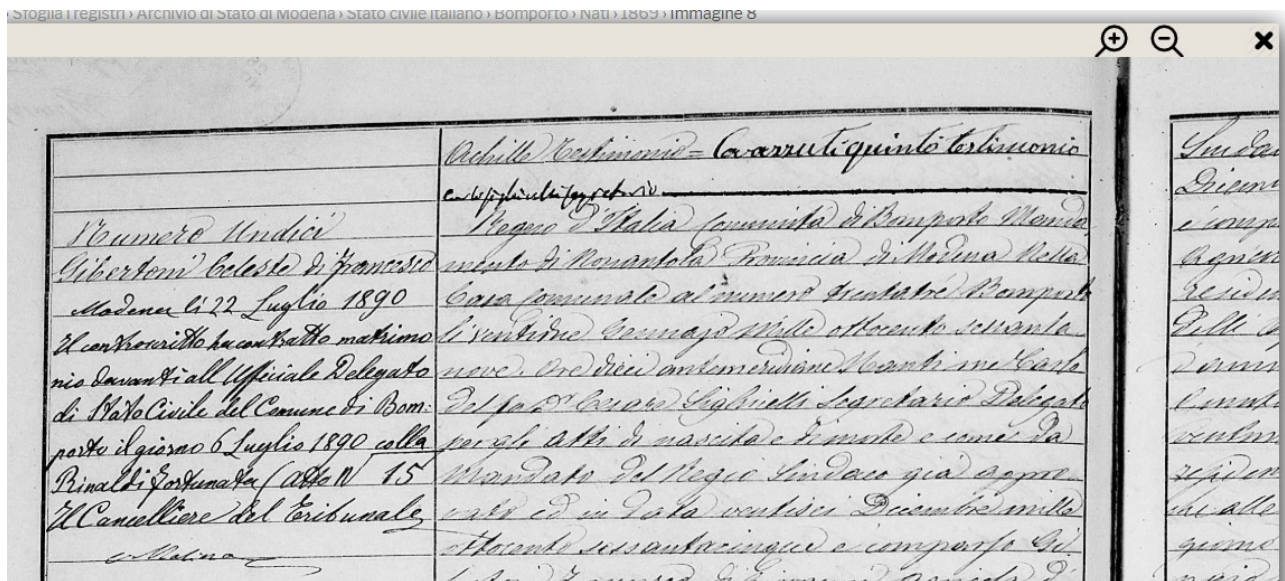 › Sfoglia i registri › Archivio di Stato di Modena › Stato civile italiano › Bomporto › Nati › 1869 › Immagine 8
Numero Undici
Gibertoni Celeste di Francesco
Modena li 22 Luglio 1890
Il controscritto ha contratto matrimo
nio davanti all Ufficiale Delegato
di Stato Civile del Comune di Bom:
porto il giorno 6 Luglio 1890 colla
Rinaldi Fortunata (Atto N 15
Il Cancelliere del Tribunale
Achille Testimonio = Cavazzuti quinto testimonio
Regno d'Italia Comunità di Bomporto Manda
mento di Nonantola Provincia di Modena Nella
Casa Comunale al numero trentatré Bomporto
li ventidue Gennajo mille ottocento sessanta
nove. Ore dieci antemeridiane Avanti me Carlo
del fu Cesare Sighinelli Segretario Delegato
per gli atti di nascita e di morte e come da
Mandato del Regio Sindaco già appro
vato ed in data ventisei Dicembre mille
ottocento sessantacinque è comparso Gi
Francesco di
Sindaco
Dicem
e compa
Residen
Gilli
d'anni
giorno